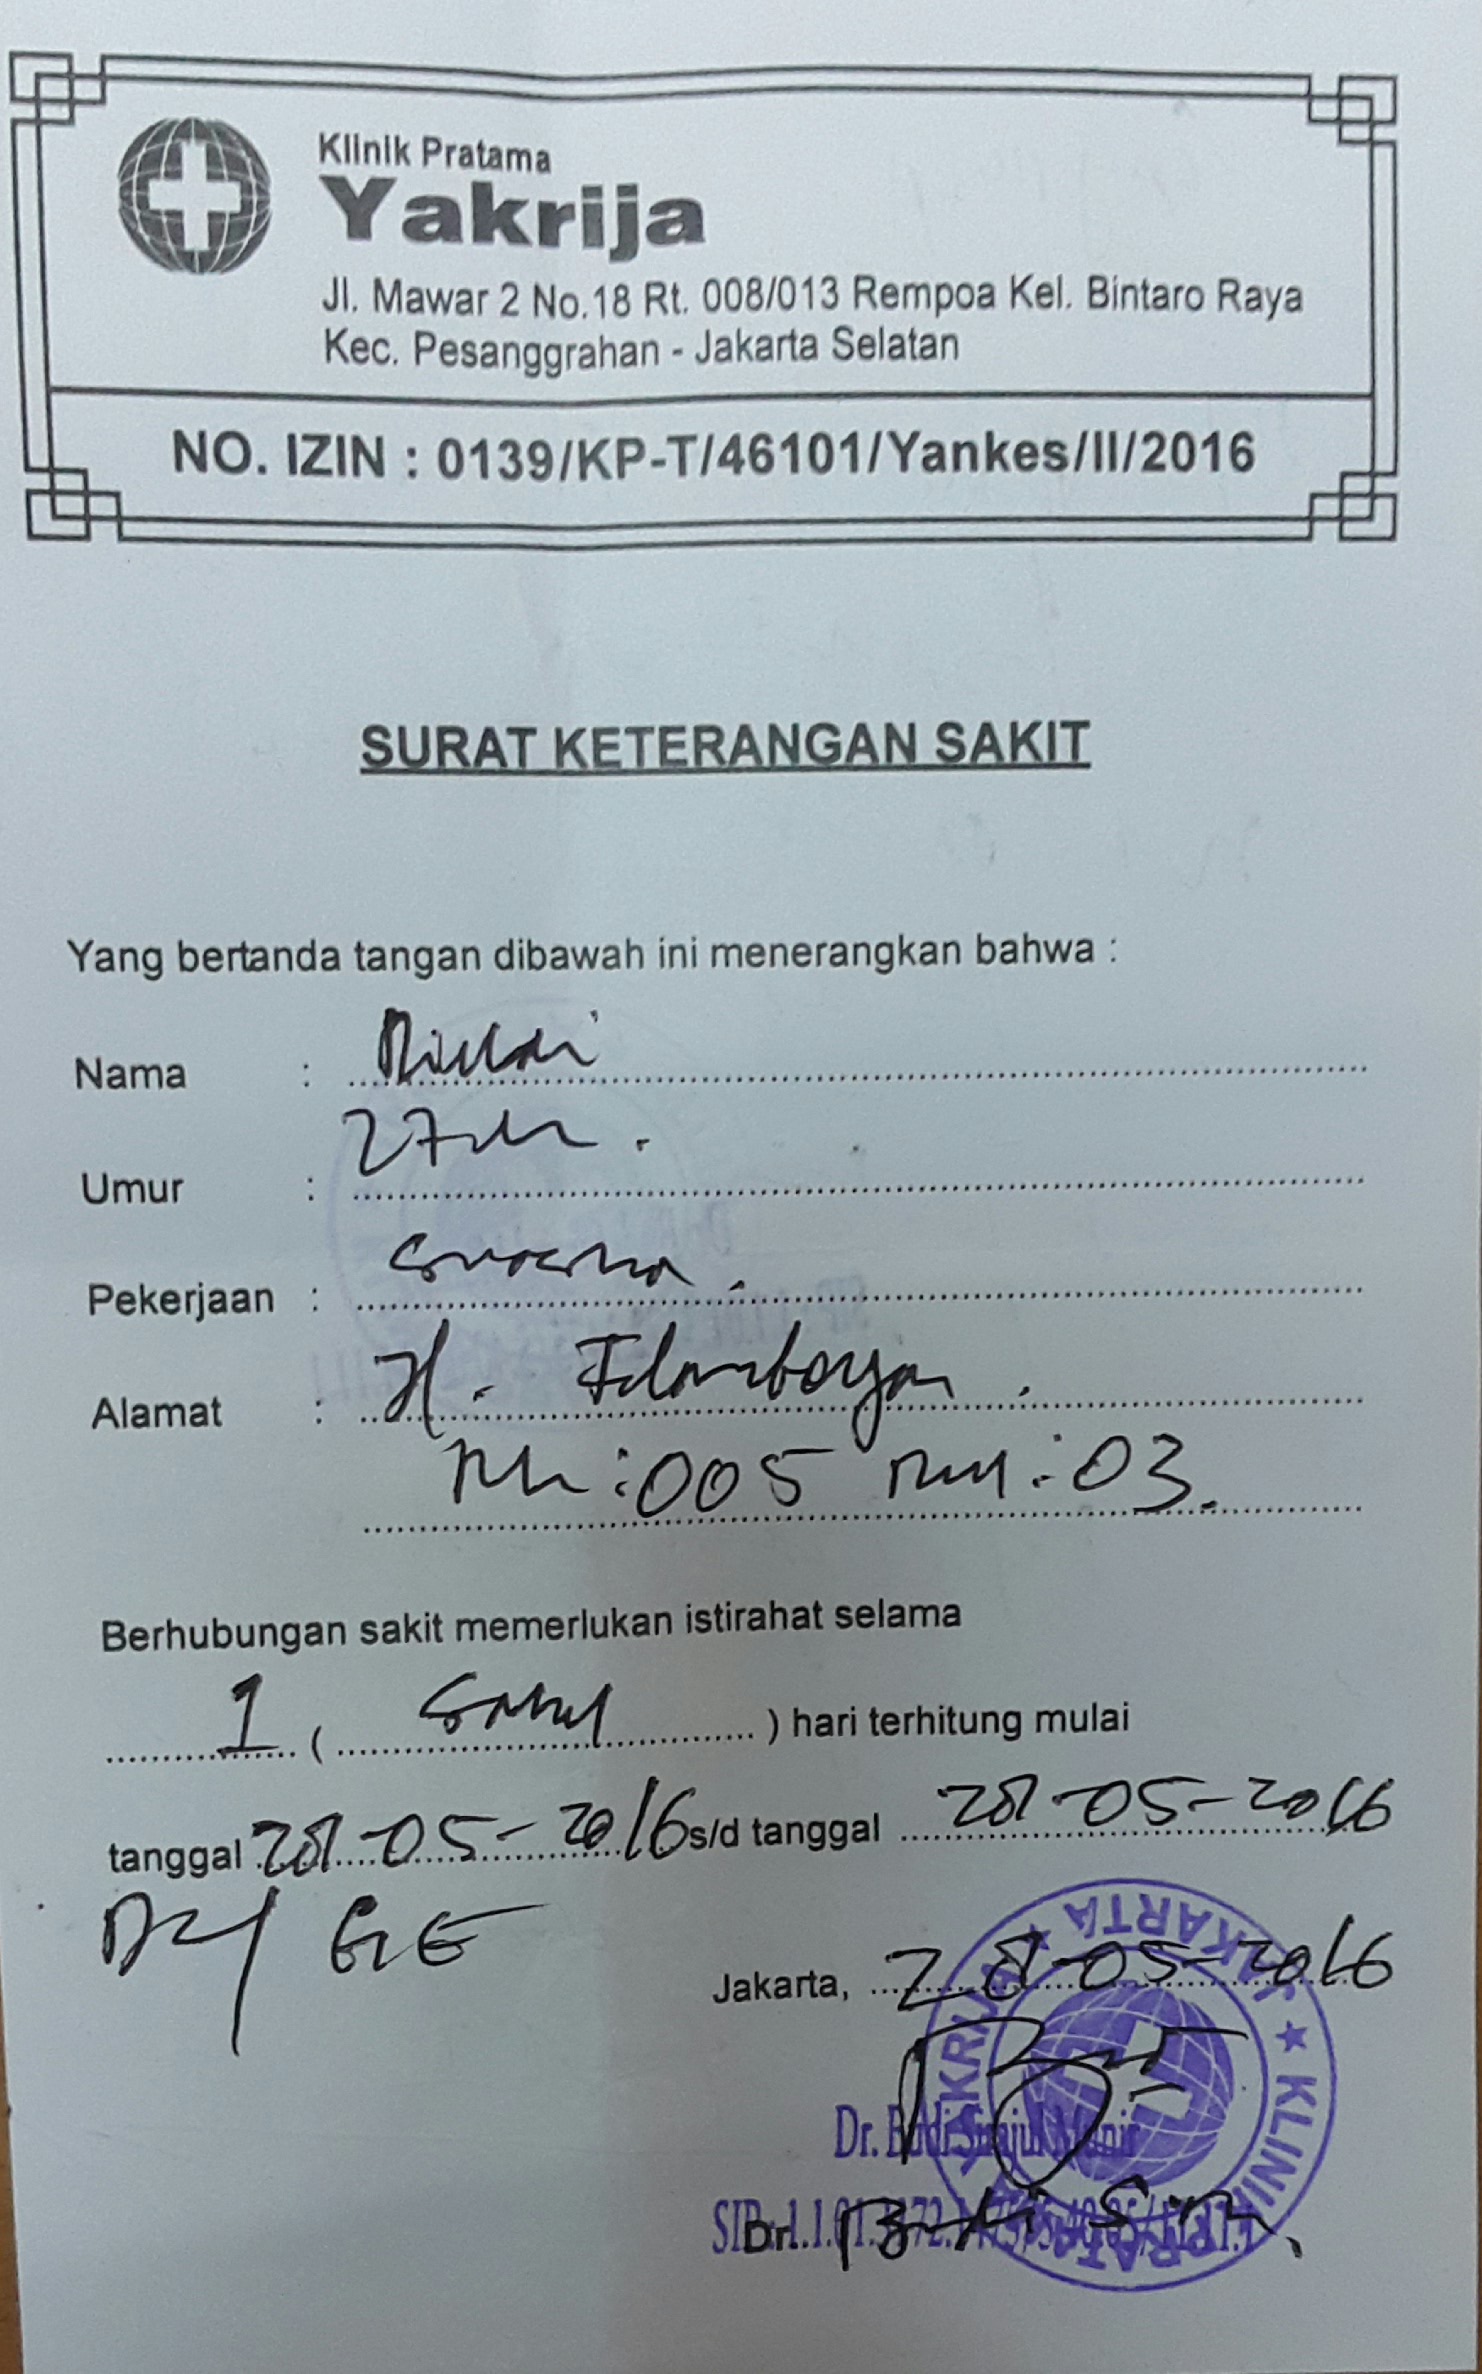 Klinik Pratama
Yakrija
Jl. Mawar 2 No.18 Rt. 008/013 Rempoa Kel. Bintaro Raya
Kec. Pesanggrahan - Jakarta Selatan
NO. IZIN : 0139/KP-T/46101/Yankes/II/2016
SURAT KETERANGAN SAKIT
Yang bertanda tangan dibawah ini menerangkan bahwa :
Nama :
Umur : 27
Pekerjaan : swasta.
Alamat : Jl. Flamboyan.
Rt : 005 Rw : 03.
Berhubungan sakit memerlukan istirahat selama
1 ( satu ) hari terhitung mulai
tanggal 28-05-2016 s/d tanggal 28-05-2016
GE
Jakarta, 28-05-2016
KLINIK PRATAMA ★ YAKRIJA ★ JAKARTA
Dr. Budi
Dr. Budi